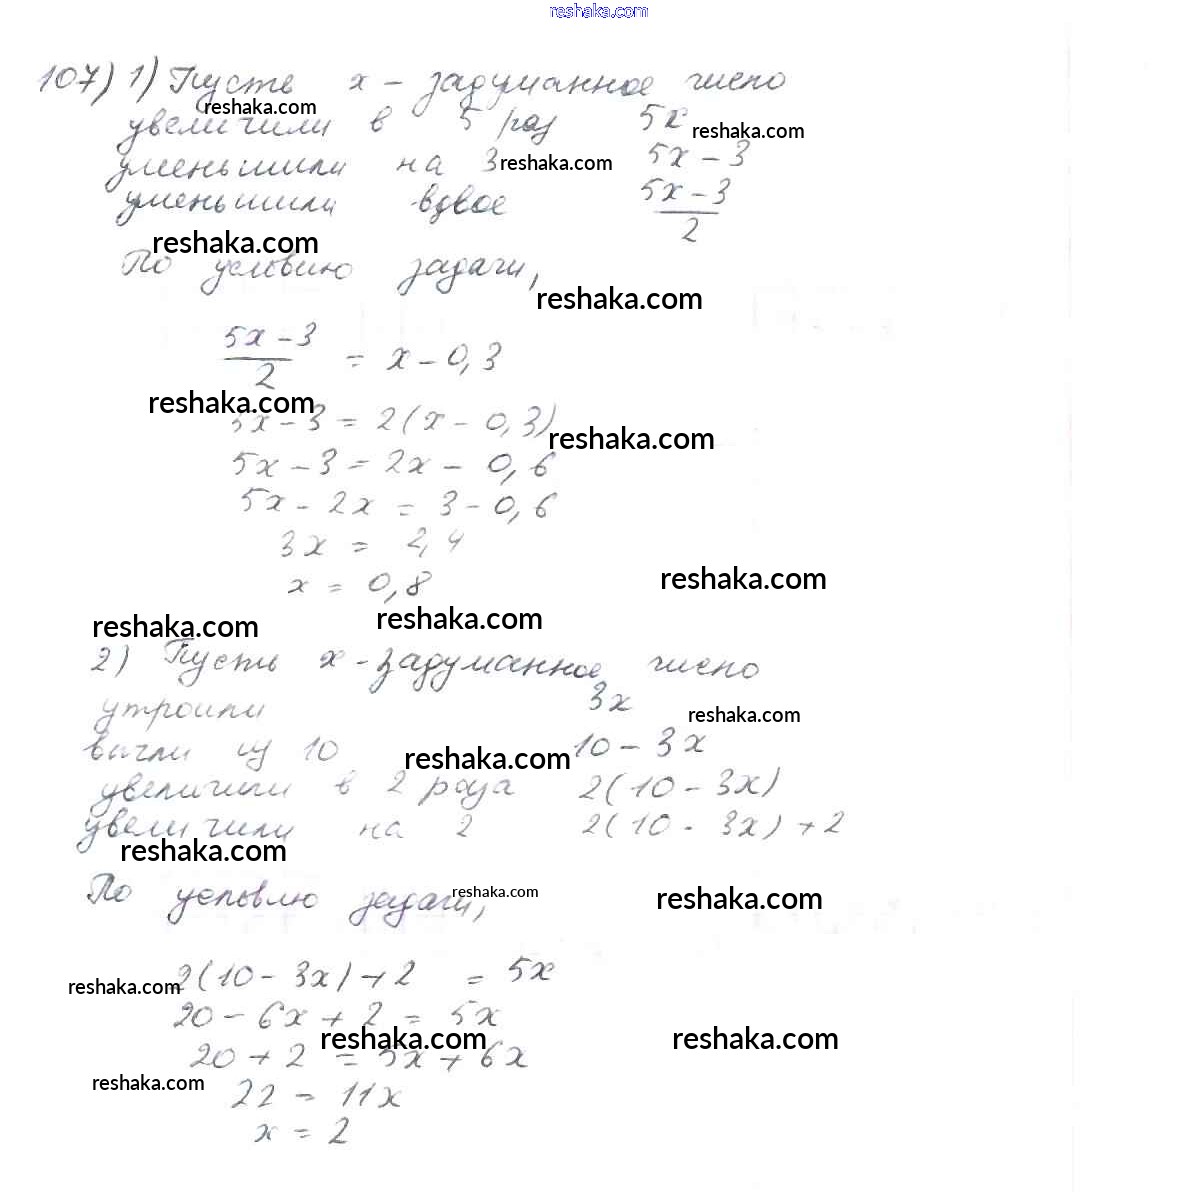 reshaka.com
107) 1) Пусть x – задуманное число
reshaka.com
увеличили в 5 раз 5x
reshaka.com
уменьшили на 3 5x – 3
reshaka.com
уменьшили вдвое 5x – 3 / 2
reshaka.com
По условию задачи,
reshaka.com
5x – 3 / 2 = x – 0,3
reshaka.com
5x – 3 = 2(x – 0,3)
reshaka.com
5x – 3 = 2x – 0,6
5x – 2x = 3 – 0,6
3x = 2,4
x = 0,8
reshaka.com
reshaka.com
reshaka.com
2) Пусть x – задуманное число
утроили 3x
reshaka.com
вычли из 10 10 – 3x
reshaka.com
увеличили в 2 раза 2(10 – 3x)
увеличили на 2 2(10 - 3x) + 2
reshaka.com
По условию задачи,
reshaka.com
reshaka.com
2(10 – 3x) + 2 = 5x
reshaka.com
20 – 6x + 2 = 5x
reshaka.com
reshaka.com
20 + 2 = 5x + 6x
reshaka.com
22 = 11x
x = 2